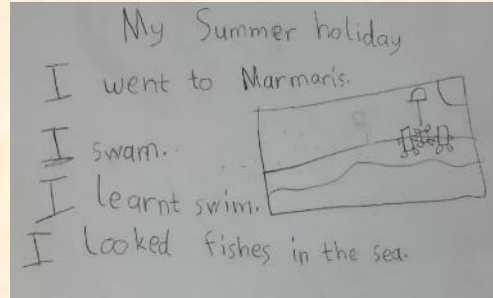 My Summer holiday
I went to Marmaris.
I swam.
I learnt swim.
I looked fishes in the sea.